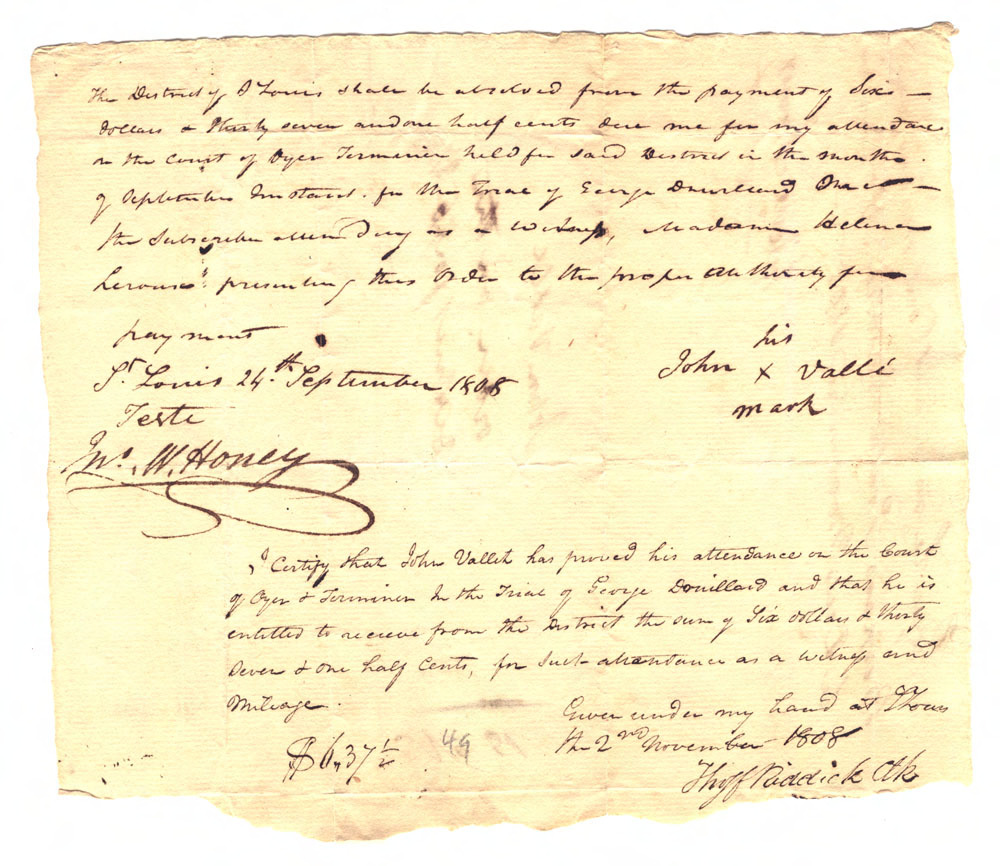 The District of St Louis shall be absolved from the payment of Six
dollars & Thirty seven and one half cents due me for my attendance
on the Court of Oyer Terminer held for said District in the month
of September Instant. for the Trial of George Douillard
the Subscriber attending as a witness, Madame Helene
Leroux presenting this order to the proper Authority for
payment
St. Louis 24th. September 1808
his
John x Vallé
mark
Teste
Jno. W. Honey
I Certify that John Vallet has proved his attendance on the Court
of Oyer & Terminer In the Trial of George Drouillard and that he is
entitled to recieve from the District the sum of Six dollars & thirty
Seven & one half Cents, for Such attendance as a witness and
Mileage.
Given under my hand at St Louis
the 2nd November 1808
$6,37½
49
Thos F Riddick Clk